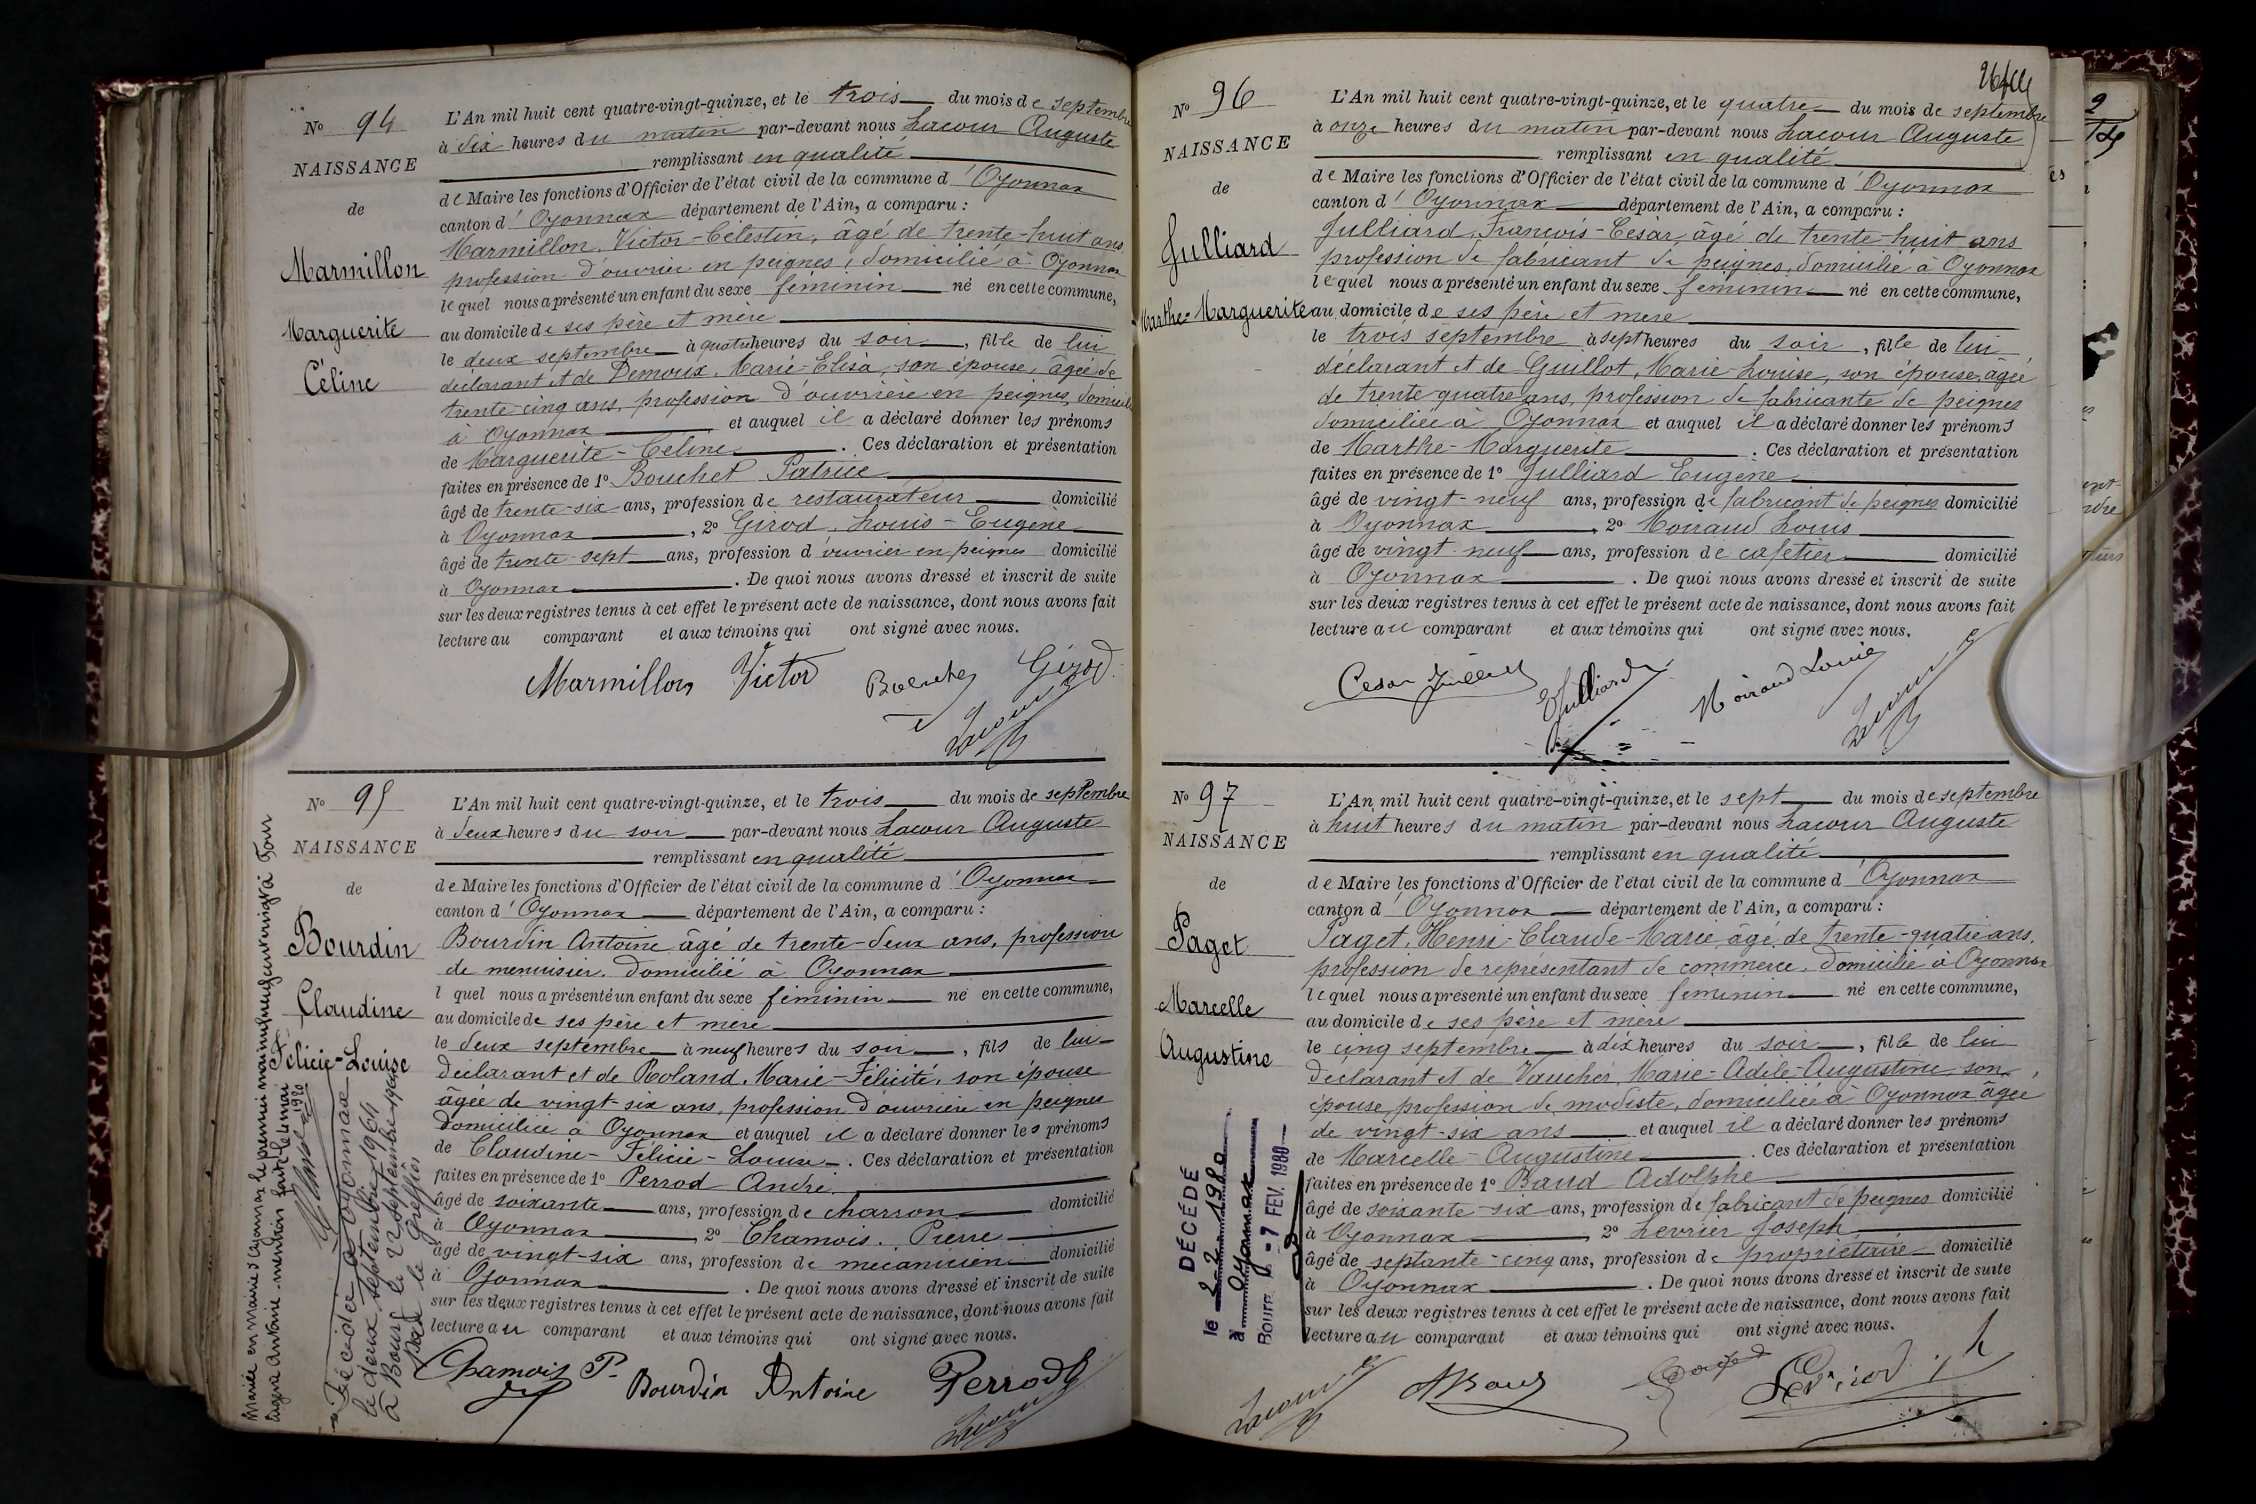 N° 94
NAISSANCE
de
Marmillon
Marguerite
Céline
L'An mil huit cent quatre-vingt-quinze, et le trois du mois de septembre
à dix heures du matin par-devant nous Lacour Auguste
remplissant en qualité
de Maire les fonctions d'Officier de l'état civil de la commune d'Oyonnax
canton d'Oyonnax département de l'Ain, a comparu :
Marmillon, Victor-Célestin, âgé de trente-huit ans
profession d'ouvrier en peignes, domicilié à Oyonnax
lequel nous a présenté un enfant du sexe féminin né en cette commune,
au domicile de ses père et mère
le deux septembre à quatre heures du soir, fille de lui
déclarant et de Demoux, Marie-Elisa, son épouse, âgée de
trente-cinq ans, profession d'ouvrière en peignes, domiciliée
à Oyonnax et auquel il a déclaré donner les prénoms
de Marguerite-Céline. Ces déclaration et présentation
faites en présence de 1° Bouchet Patrice
âgé de trente-six ans, profession de restaurateur domicilié
à Oyonnax, 2° Girod, Louis-Eugène
âgé de trente-sept ans, profession d'ouvrier en peignes domicilié
à Oyonnax. De quoi nous avons dressé et inscrit de suite
sur les deux registres tenus à cet effet le présent acte de naissance, dont nous avons fait
lecture au comparant et aux témoins qui ont signé avec nous.
Marmillon Victor Bouchet Girod
Lacour
N° 95
NAISSANCE
de
Bourdin
Claudine
Félicie-Louise
Mariée en mairie d'Oyonnax le premier mai mil neuf cent vingt à
Eugène Antoine. mention faite le 1er mai
1920
Décédée à Oyonnax
le deux septembre 1964
à Bourg le 22 septembre 1964
le Greffier
L'An mil huit cent quatre-vingt-quinze, et le trois du mois de septembre
à deux heures du soir par-devant nous Lacour Auguste
remplissant en qualité
de Maire les fonctions d'Officier de l'état civil de la commune d'Oyonnax
canton d'Oyonnax département de l'Ain, a comparu :
Bourdin Antoine âgé de trente-deux ans, profession
de menuisier. domicilié à Oyonnax
l quel nous a présenté un enfant du sexe féminin né en cette commune,
au domicile de ses père et mère
le deux septembre à neuf heures du soir, fils de lui
déclarant et de Roland, Marie-Félicité, son épouse
âgée de vingt-six ans, profession d'ouvrière en peignes
domiciliée à Oyonnax et auquel il a déclaré donner les prénoms
de Claudine-Félicie-Louise. Ces déclaration et présentation
faites en présence de 1° Perrod André
âgé de soixante ans, profession de charron domicilié
à Oyonnax, 2° Chamois, Pierre
âgé de vingt-six ans, profession de mécanicien domicilié
à Oyonnax. De quoi nous avons dressé et inscrit de suite
sur les deux registres tenus à cet effet le présent acte de naissance, dont nous avons fait
lecture au comparant et aux témoins qui ont signé avec nous.
Chamois P. Bourdin Antoine Perrod
Lacour
N° 96
NAISSANCE
de
Julliard
Marthe-Marguerite
L'An mil huit cent quatre-vingt-quinze, et le quatre du mois de septembre
à onze heures du matin par-devant nous Lacour Auguste
remplissant en qualité
de Maire les fonctions d'Officier de l'état civil de la commune d'Oyonnax
canton d'Oyonnax département de l'Ain, a comparu :
Julliard, François-César, âgé de trente-huit ans
profession de fabricant de peignes, domicilié à Oyonnax
lequel nous a présenté un enfant du sexe féminin né en cette commune,
au domicile de ses père et mère
le trois septembre à sept heures du soir, fille de lui
déclarant et de Guillot, Marie-Louise, son épouse, âgée
de trente-quatre ans, profession de fabricante de peignes
domiciliée à Oyonnax et auquel il a déclaré donner les prénoms
de Marthe-Marguerite. Ces déclaration et présentation
faites en présence de 1° Julliard Eugène
âgé de vingt-neuf ans, profession de fabricant de peignes domicilié
à Oyonnax, 2° Moiraud Louis
âgé de vingt-neuf ans, profession de cafetier domicilié
à Oyonnax. De quoi nous avons dressé et inscrit de suite
sur les deux registres tenus à cet effet le présent acte de naissance, dont nous avons fait
lecture au comparant et aux témoins qui ont signé avec nous.
César Julliard E Julliard Moiraud Louis Lacour
N° 97
NAISSANCE
de
Paget
Marcelle
Augustine
DÉCÉDÉ
le 2 2 1980
à Oyonnax
BOURG, le -7 FEV. 1980
L'An mil huit cent quatre-vingt-quinze, et le sept du mois de septembre
à huit heures du matin par-devant nous Lacour Auguste
remplissant en qualité
de Maire les fonctions d'Officier de l'état civil de la commune d'Oyonnax
canton d'Oyonnax département de l'Ain, a comparu :
Paget, Henri-Claude-Marie, âgé de trente-quatre ans,
profession de représentant de commerce, domicilié à Oyonnax
lequel nous a présenté un enfant du sexe féminin né en cette commune,
au domicile de ses père et mère
le cinq septembre à dix heures du soir, fille de lui
déclarant et de Vaucher, Marie-Adèle-Augustine son
épouse, profession de modiste, domiciliée à Oyonnax âgée
de vingt-six ans et auquel il a déclaré donner les prénoms
de Marcelle-Augustine. Ces déclaration et présentation
faites en présence de 1° Baud Adolphe
âgé de soixante-six ans, profession de fabricant de peignes domicilié
à Oyonnax, 2° Levrier Joseph
âgé de septante-cinq ans, profession de propriétaire domicilié
à Oyonnax. De quoi nous avons dressé et inscrit de suite
sur les deux registres tenus à cet effet le présent acte de naissance, dont nous avons fait
lecture au comparant et aux témoins qui ont signé avec nous.
Lacour A Baud